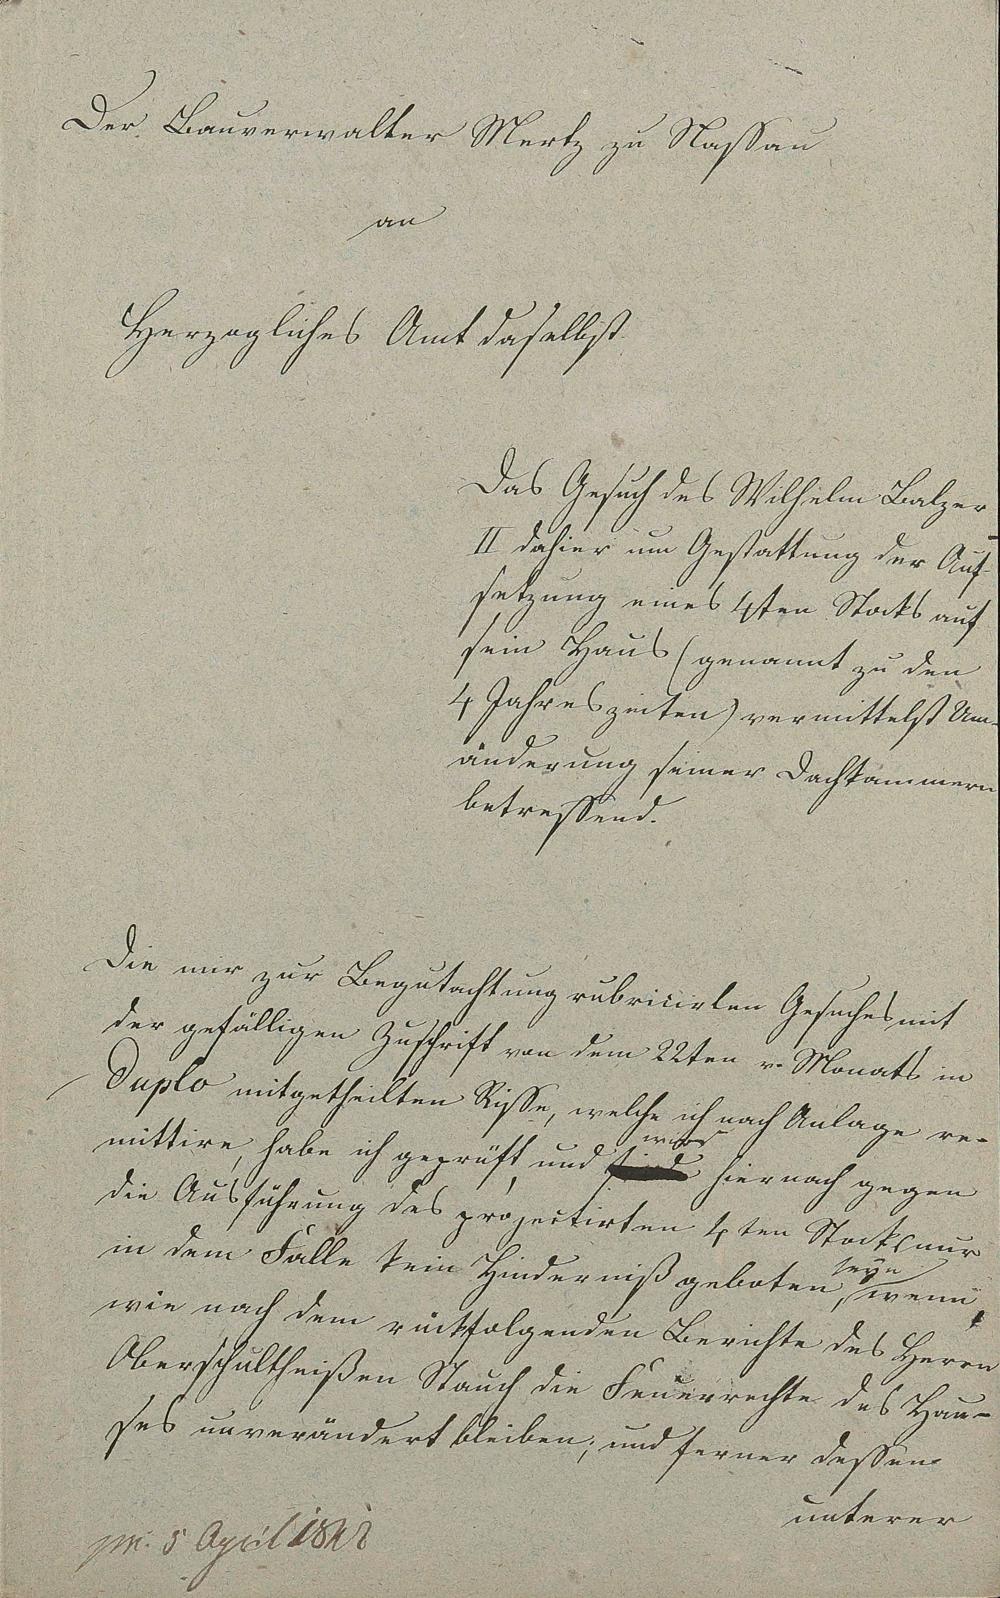 Der Bauverwalter Mertz zu Nassau
an
Herzogliches Amt daselbst.
Das Gesuch des Wilhelm Balzer
II dahier um Gestattung der Auf-
setzung eines 4ten Stocks auf
sein Haus (genannt zu den
4 Jahreszeiten) vermittelst Um-
änderung seiner Dachkammern
betreffend.
Die mir zur Begutachtung rubricirten Gesuches mit
der gefälligen Zuschrift von dem 22ten v. Monats in
Duplo mitgetheilten Risse, welche ich nach Anlage re-
wird
mittire, habe ich geprüft, und hiernach gegen
die Ausführung des projectirten 4ten Stocks nur
seyn
in dem Falle kein Hinderniß geboten, wenn,
wie nach dem rückfolgenden Berichte des Herrn
Oberschultheißen Stauch die Feuerrechte des Hau-
ses unverändert bleiben, und ferner dessen
unterer
pr. 5 April 1848